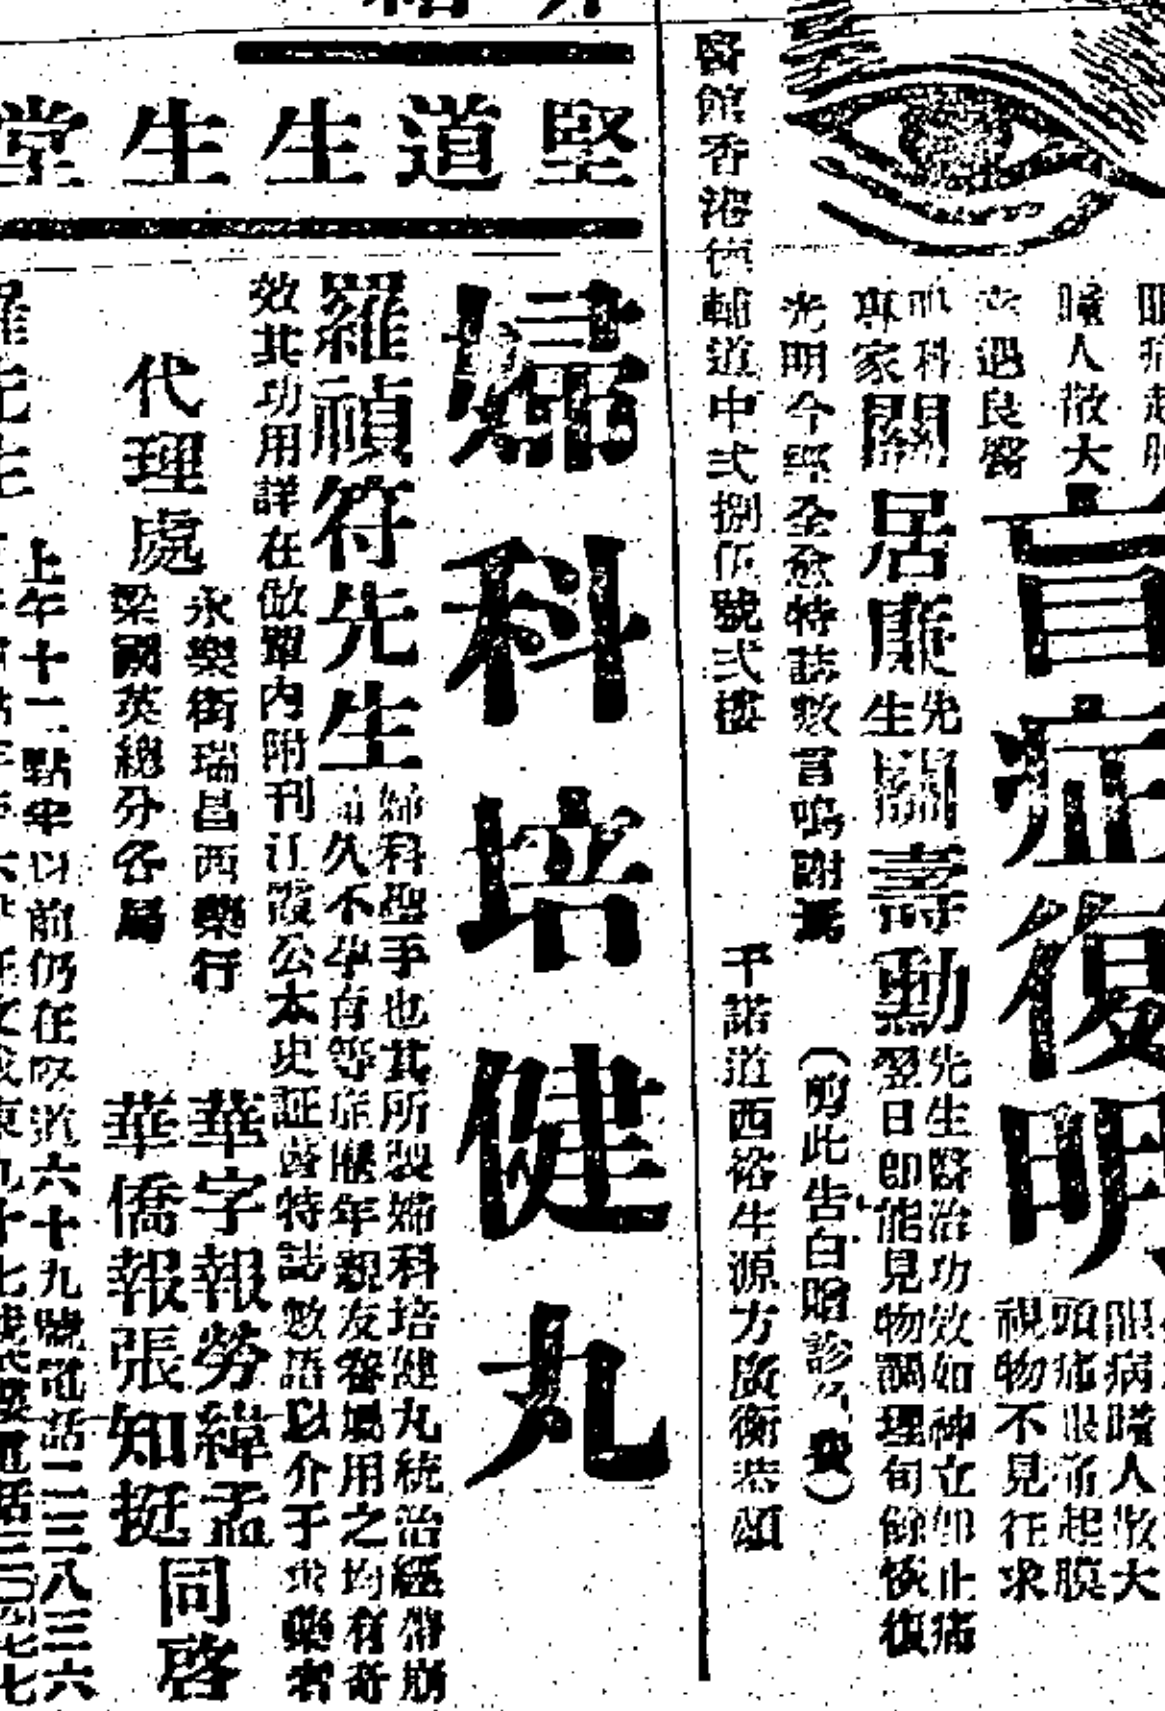 眼病起
瞳人散大
遇良醫
盲症復明
眼病瞳人散大
頭痛眼痛起膜
視物不見往求
眼科專家關居廉先生關壽勳先生醫治功效如神立即止痛
翌日即能見物調理旬餘恢復
光明今經全愈特誌數言鳴謝焉
(剪此告白贈診費)
醫館香港德輔道中弍捌伍號弍樓
干諾道西裕生源方廣衡恭頌
堅道生生堂
婦科培健丸
羅禎符先生
婦科聖手也其所製婦科培健丸統治經帶崩
漏久不孕育等症歷年親友眷屬用之均有奇
效其功用詳在倣單內附刊江霞公太史証書特誌數語以介于求藥者
代理處
永樂街瑞昌西藥行
梁國英總分各局
華字報勞緯孟
華僑報張知挺
同啓
上午十二點半以前仍在堅道六十九號電話二三八三六
羅先生